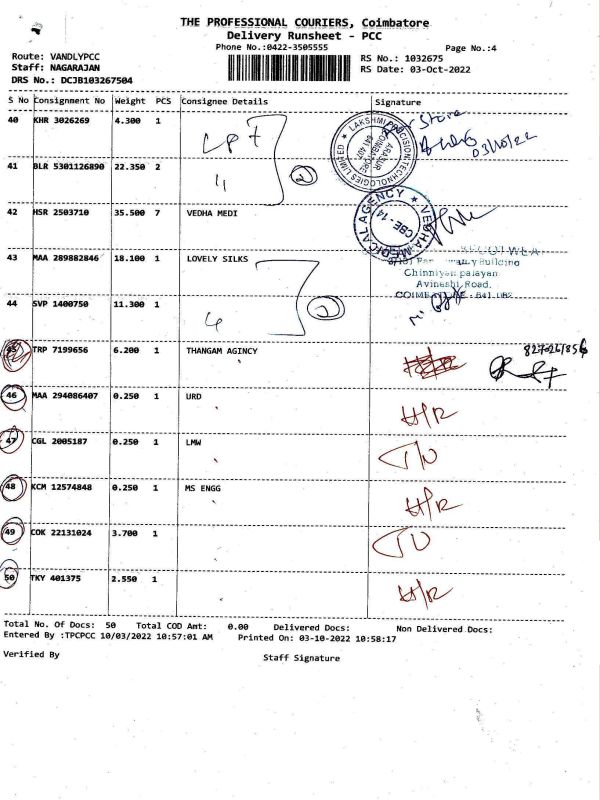 THE PROFESSIONAL COURIERS, Coimbatore
Delivery Runsheet - PCC
Phone No.:0422-3505555
Page No.:4
Route: VANDLYPCC
Staff: NAGARAJAN
DRS No.: DCJB103267504
RS No.: 1032675
RS Date: 03-Oct-2022
S No Consignment No Weight PCS Consignee Details Signature
40 KHR 3026269 4.300 1
Store
03/10/22
LAKSHMI PRECISION TECHNOLOGIES LIMITED
ARASUR
COIMBATORE
641 407
41 BLR 5301126890 22.350 2
2
42 HSR 2503710 35.500 7 VEDHA MEDI
VEDHA MEDICAL AGENCY
CBE-14
43 MAA 289882846 18.100 1 LOVELY SILKS
Building
Chinniyampalayam
Avinashi Road,
COIMBATORE - 641 062
44 SVP 1400750 11.300 1
2
45 TRP 7199656 6.200 1 THANGAM AGINCY
46 MAA 294086407 0.250 1 URD
H/R
47 CGL 2005187 0.250 1 LMW
48 KCM 12574848 0.250 1 MS ENGG
H/R
49 COK 22131024 3.700 1
50 TKY 401375 2.550 1
H/R
Total No. Of Docs: 50 Total COD Amt: 0.00 Delivered Docs: Non Delivered Docs:
Entered By :TPCPCC 10/03/2022 10:57:01 AM Printed On: 03-10-2022 10:58:17
Verified By Staff Signature